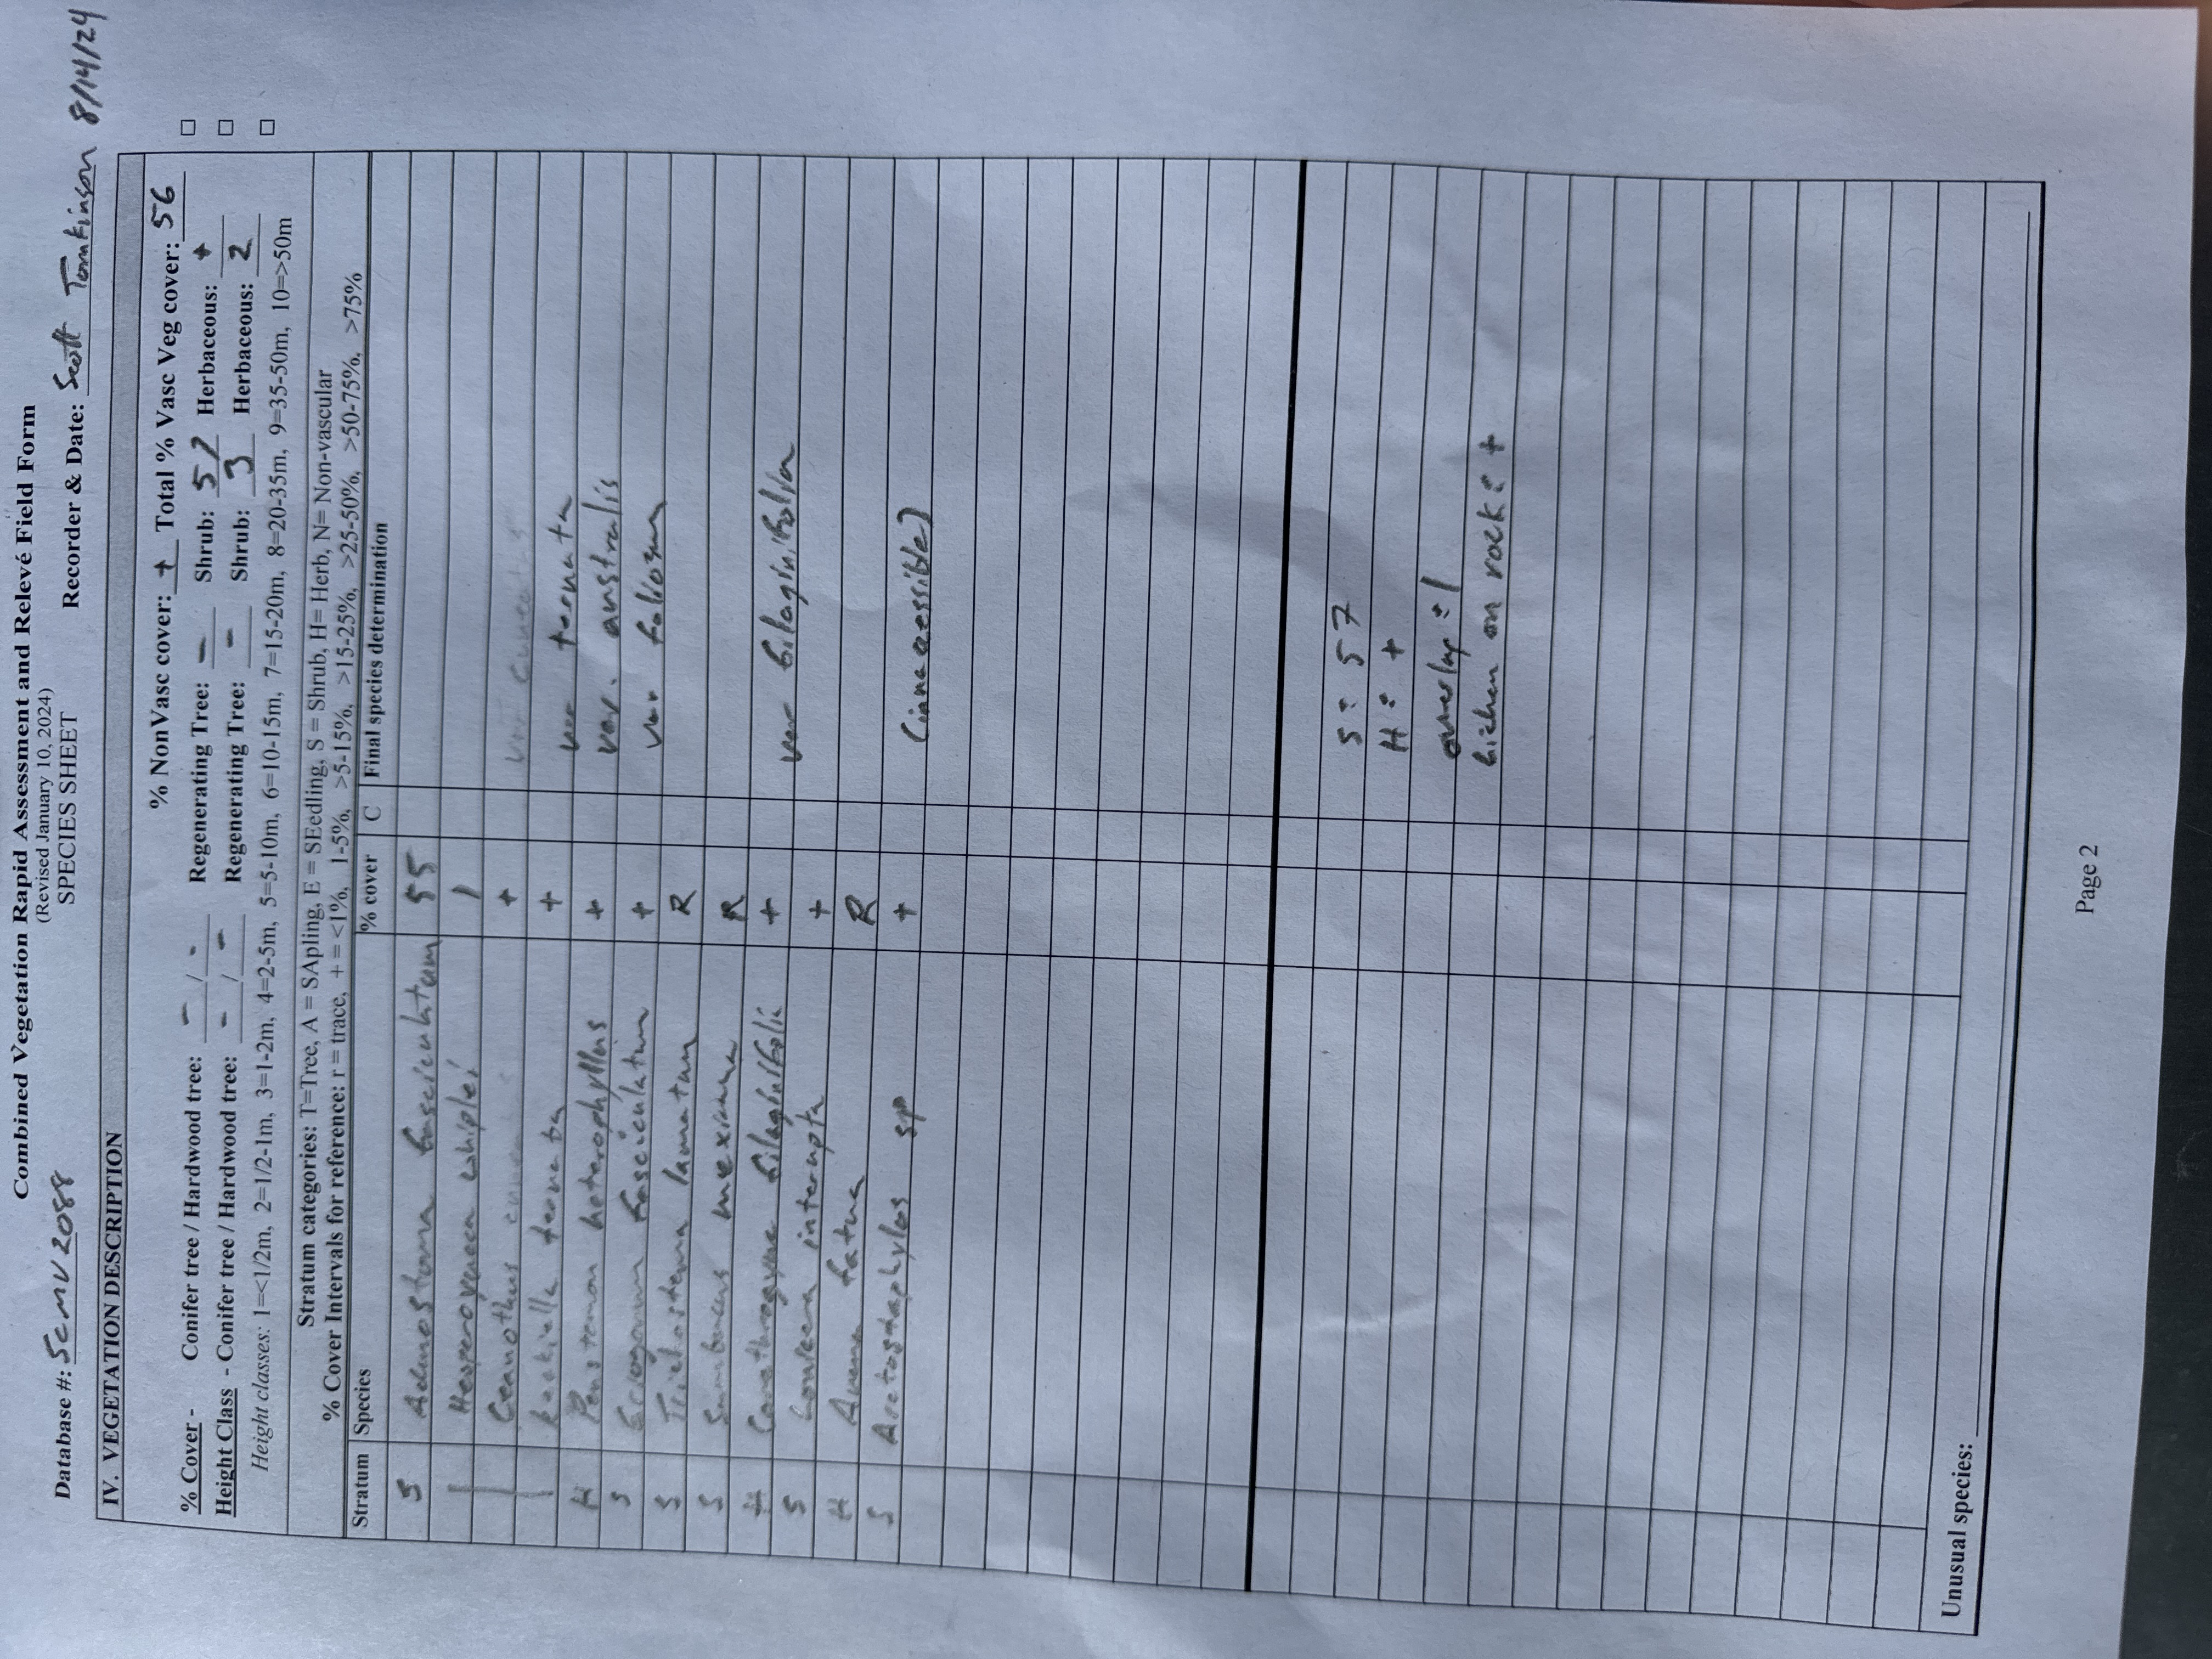 Combined Vegetation Rapid Assessment and Relevé Field Form
(Revised January 10, 2024)
SPECIES SHEET
Database #: SCMV2088 Recorder & Date: Scott Tomkinson 8/14/24
IV. VEGETATION DESCRIPTION
% NonVasc cover: + Total % Vasc Veg cover: 56
% Cover - Conifer tree / Hardwood tree: - / - Regenerating Tree: - Shrub: 57 Herbaceous: +
Height Class - Conifer tree / Hardwood tree: - / - Regenerating Tree: - Shrub: 3 Herbaceous: 2
Height classes: 1=<1/2m, 2=1/2-1m, 3=1-2m, 4=2-5m, 5=5-10m, 6=10-15m, 7=15-20m, 8=20-35m, 9=35-50m, 10=>50m
Stratum categories: T=Tree, A = SApling, E = SEedling, S = Shrub, H= Herb, N= Non-vascular
% Cover Intervals for reference: r = trace, + = <1%, 1-5%, >5-15%, >15-25%, >25-50%, >50-75%, >75%
Stratum Species % cover C Final species determination
S Adenostoma fasciculatum 55
| Hesperoyucca whiplei 1
Ceanothus +
| Keckiella ternata + var ternata
H Penstemon heterophyllus + var. australis
S Eriogonum fasciculatum + var foliosum
S Trichostema lanatum R
S Sambucus mexicana R
H Corethrogyne filaginifolia + var filaginifolia
S Lonicera interrupta +
H Avena fatua R
S Arctostaphylos sp + (inaccessible)
S: 57
H: +
overlap: 1
lichen on rock: +
Unusual species:
Page 2